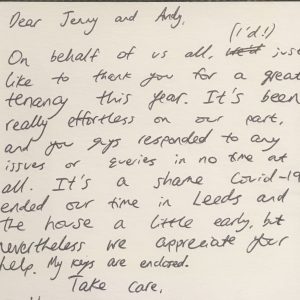 Dear Jerry and Andy,
(I'd!)
On behalf of us all, we'd just
like to thank you for a great
tenancy this year. It's been
really effortless on our part,
and you guys responded to any
issues or queries in no time at
all. It's a shame Covid-19
ended our time in Leeds and
the house a little early, but
nevertheless we appreciate your
help. My keys are enclosed.
Take care,